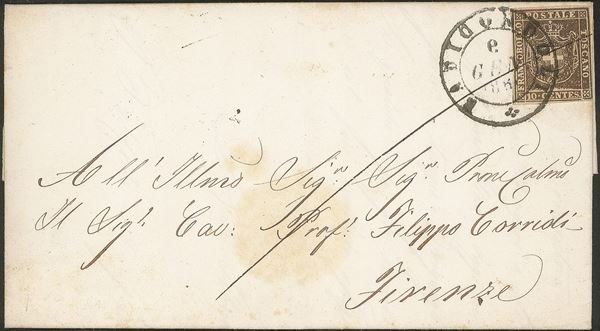 FRANCOBOLLO POSTALE TOSCANO
10 CENTES.
6
GEN
All' Illmo Sigre Sigr Prone Colmo
Il Sigr. Cav: Prof. Filippo Corridi
Firenze